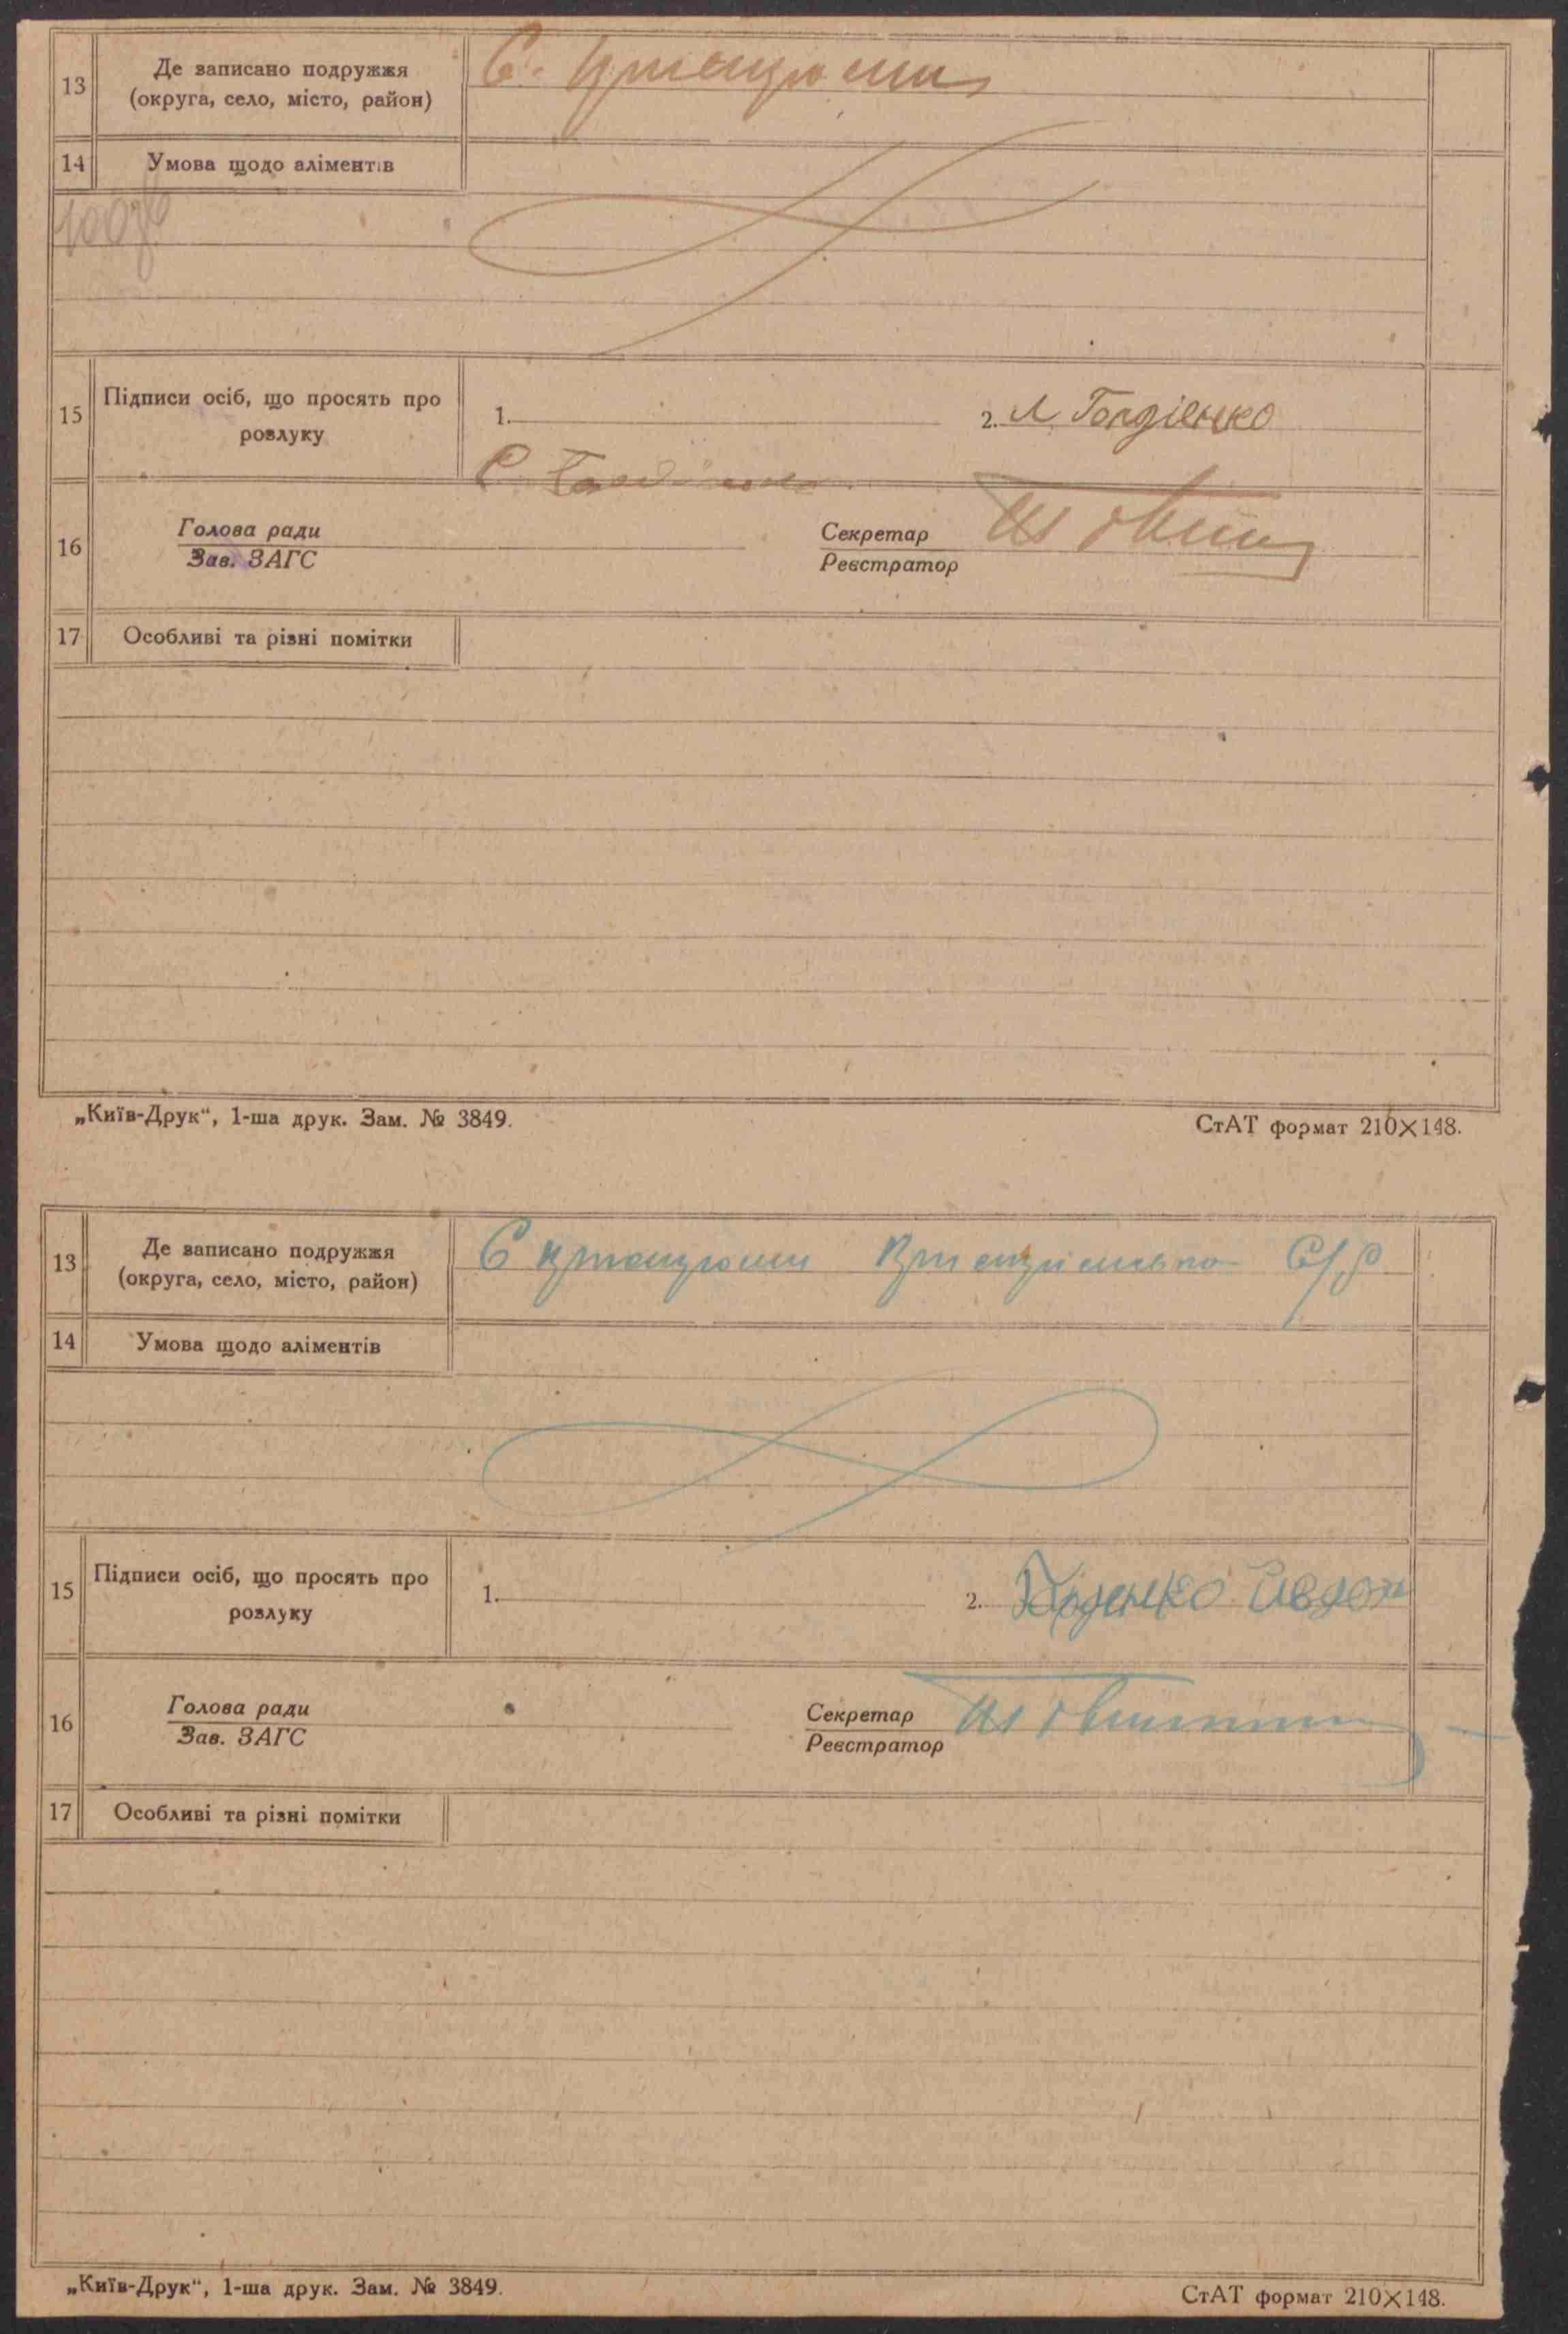 13 Де записано подружжя
(округа, село, місто, район)
С.
14 Умова щодо аліментів
15 Підписи осіб, що просять про
розлуку
1. 2. Л Гордієнко
С.
16 Голова ради
Зав. ЗАГС
Секретар
Реєстратор
17 Особливі та різні помітки
„Київ-Друк“, 1-ша друк. Зам. № 3849. СтАТ формат 210×148.
13 Де записано подружжя
(округа, село, місто, район)
С С/Р
14 Умова щодо аліментів
15 Підписи осіб, що просять про
розлуку
1. 2.
16 Голова ради
Зав. ЗАГС
Секретар
Реєстратор
17 Особливі та різні помітки
„Київ-Друк“, 1-ша друк. Зам. № 3849. СтАТ формат 210×148.